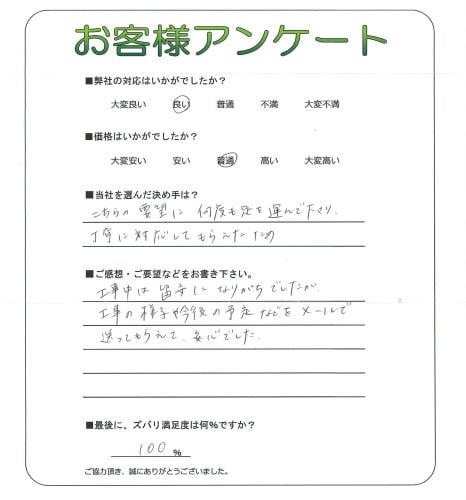 お客様アンケート
■弊社の対応はいかがでしたか？
大変良い 良い 普通 不満 大変不満
■価格はいかがでしたか？
大変安い 安い 普通 高い 大変高い
■当社を選んだ決め手は？
こちらの要望に何度も足を運んで下さり、
丁寧に対応してもらえたため
■ご感想・ご要望などをお書き下さい。
工事中は留守になりがちでしたが、
工事の様子や今後の予定などをメールで
送ってもらえて、安心でした。
■最後に、ズバリ満足度は何%ですか？
100 %
ご協力頂き、誠にありがとうございました。